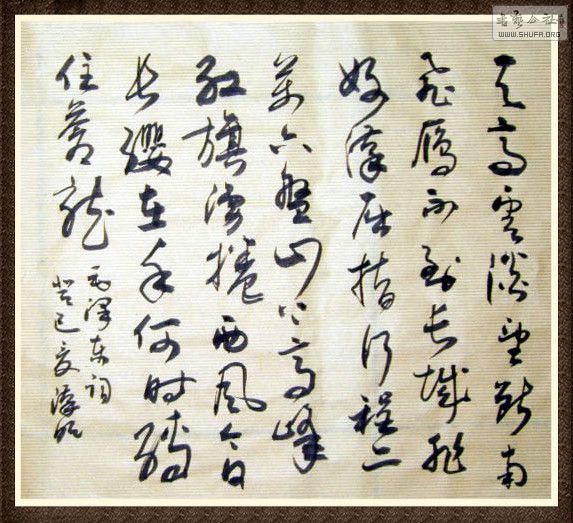 天高雲淡望断南
飛雁不到长城非
好漢屈指行程二
萬六盘山上高峰
红旗漫捲西风今日
长缨在手何时缚
住蒼龙
毛泽东词
癸巳夏
书艺公社
WWW.SHUFA.ORG